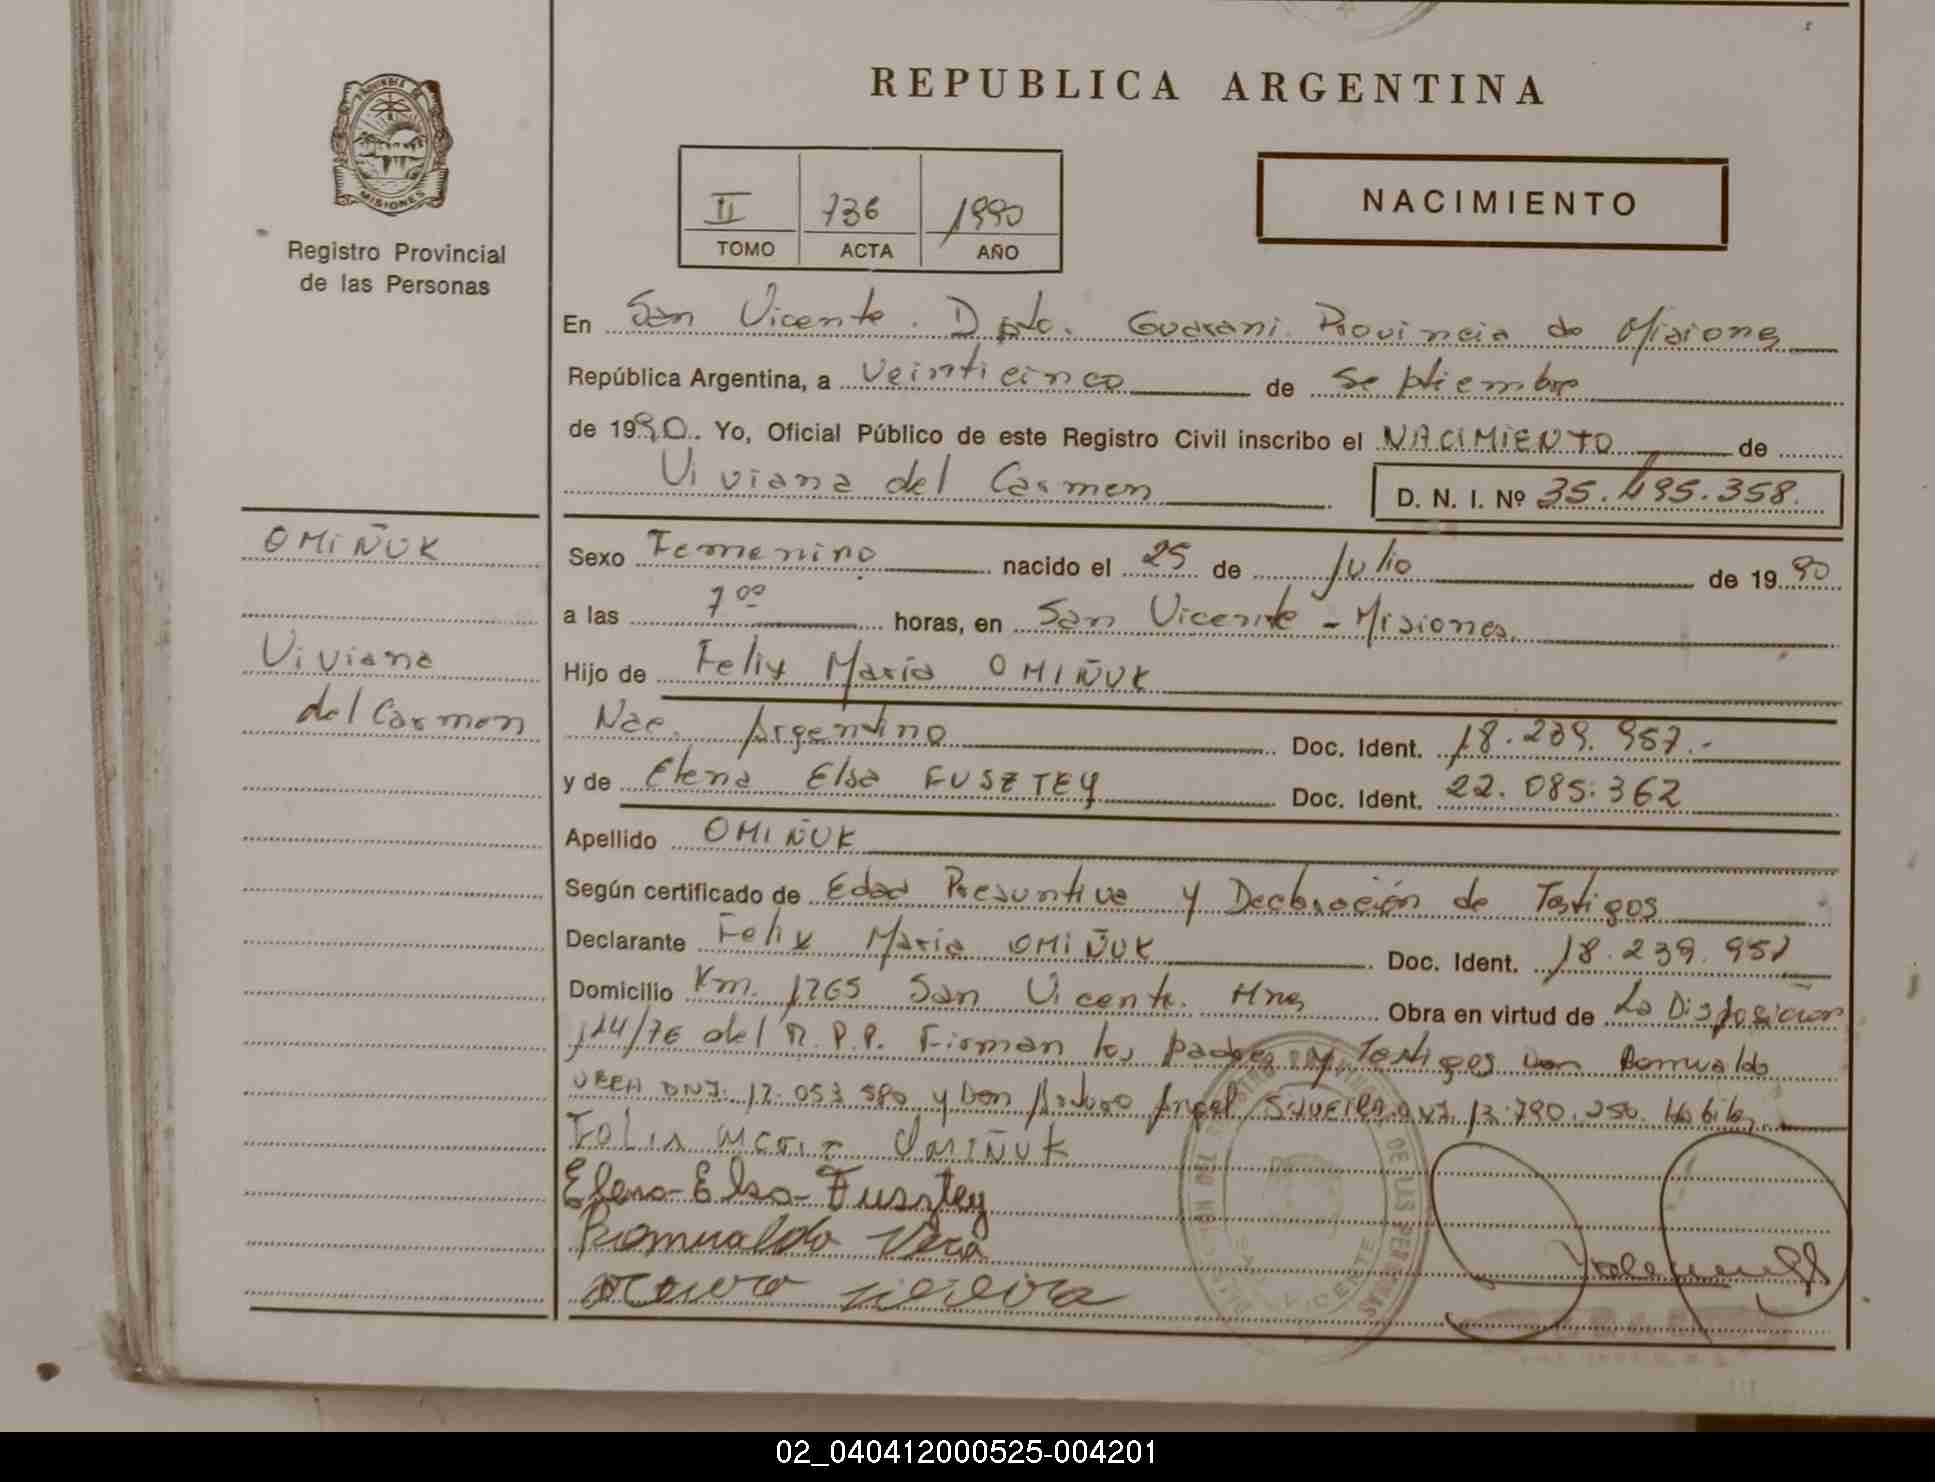 REPUBLICA ARGENTINA
PROVINCIA DE
MISIONES
Registro Provincial
de las Personas
II 736 1990
TOMO ACTA AÑO
NACIMIENTO
En San Vicente. Dpto. Guarani Provincia de Misiones
República Argentina, a Veinticinco de Septiembre
de 1990. Yo, Oficial Público de este Registro Civil inscribo el NACIMIENTO de
Viviana del Carmen D. N. I. Nº 35.495.358.
OMIÑUK
Viviana
del Carmen
Sexo Femenino nacido el 25 de Julio de 1990
a las 7 00 horas, en San Vicente - Misiones.
Hijo de Felix Maria OMIÑUK
Nac. Argentino Doc. Ident. 18.239.957.-
y de Elena Elsa FUSZTEY Doc. Ident. 22.085.362
Apellido OMIÑUK
Según certificado de Edad Presuntiva y Declaración de Testigos
Declarante Felix Maria OMIÑUK Doc. Ident. 18.239.957
Domicilio Km. 1265 San Vicente. Mnes Obra en virtud de La Disposicion
114/76 del R.P.P. Firman los padres y Testigos Don Romualdo
DNI. 12.053 580 y Don Arturo Angel DNI 13.790.250. Habiles
Felix Maria OMIÑUK
Elena Elsa Fusztey
Romualdo Vera
VICENTE
02_040412000525-004201